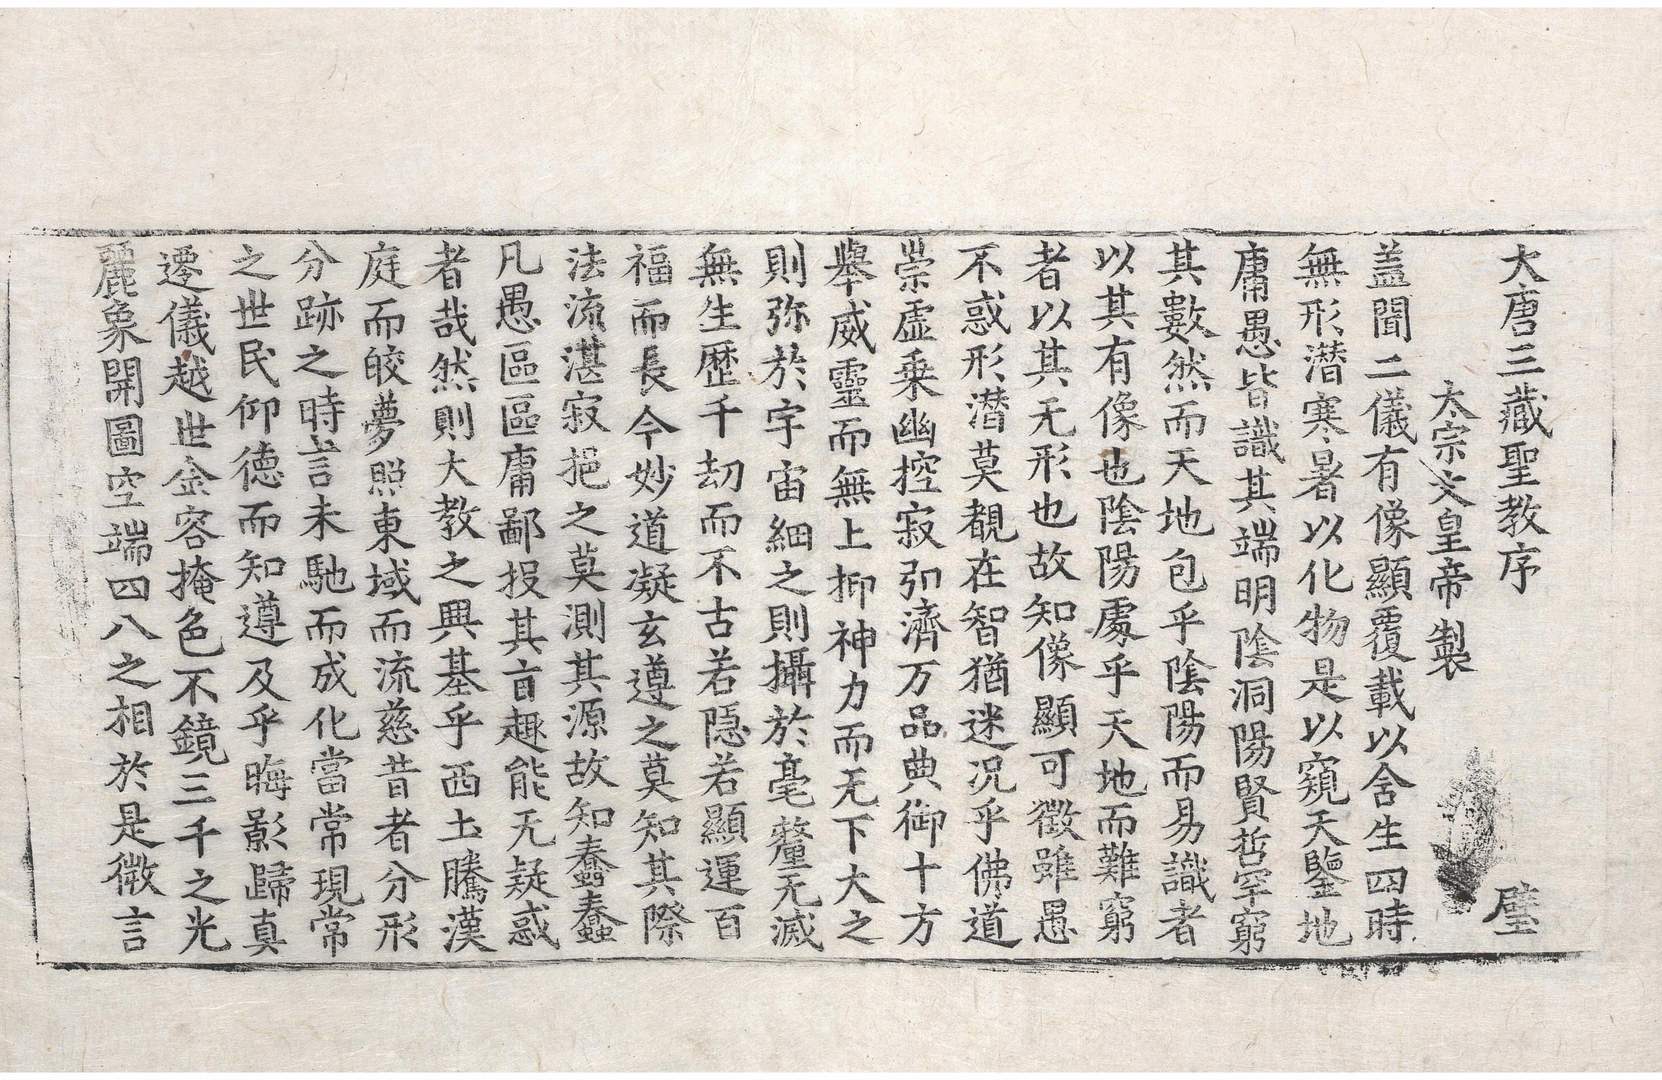 大唐三藏聖教序 璧
太宗文皇帝製
蓋聞二儀有像顯覆載以含生四時
無形潛寒暑以化物是以窺天鑒地
庸愚皆識其端明陰洞陽賢哲罕窮
其數然而天地包乎陰陽而易識者
以其有像也陰陽處乎天地而難窮
者以其无形也故知像顯可徵雖愚
不惑形潛莫覩在智猶迷况乎佛道
崇虛乗幽控寂弘濟万品典御十方
舉威靈而無上抑神力而无下大之
則弥於宇宙細之則攝於毫釐无滅
無生歷千劫而不古若隱若顯運百
福而長今妙道凝玄遵之莫知其際
法流湛寂挹之莫測其源故知蠢蠢
凡愚區區庸鄙投其旨趣能无疑惑
者哉然則大教之興基乎西土騰漢
庭而皎夢照東域而流慈昔者分形
分跡之時言未馳而成化當常現常
之世民仰德而知遵及乎晦影歸真
遷儀越世金容掩色不鏡三千之光
麗象開圖空端四八之相於是微言